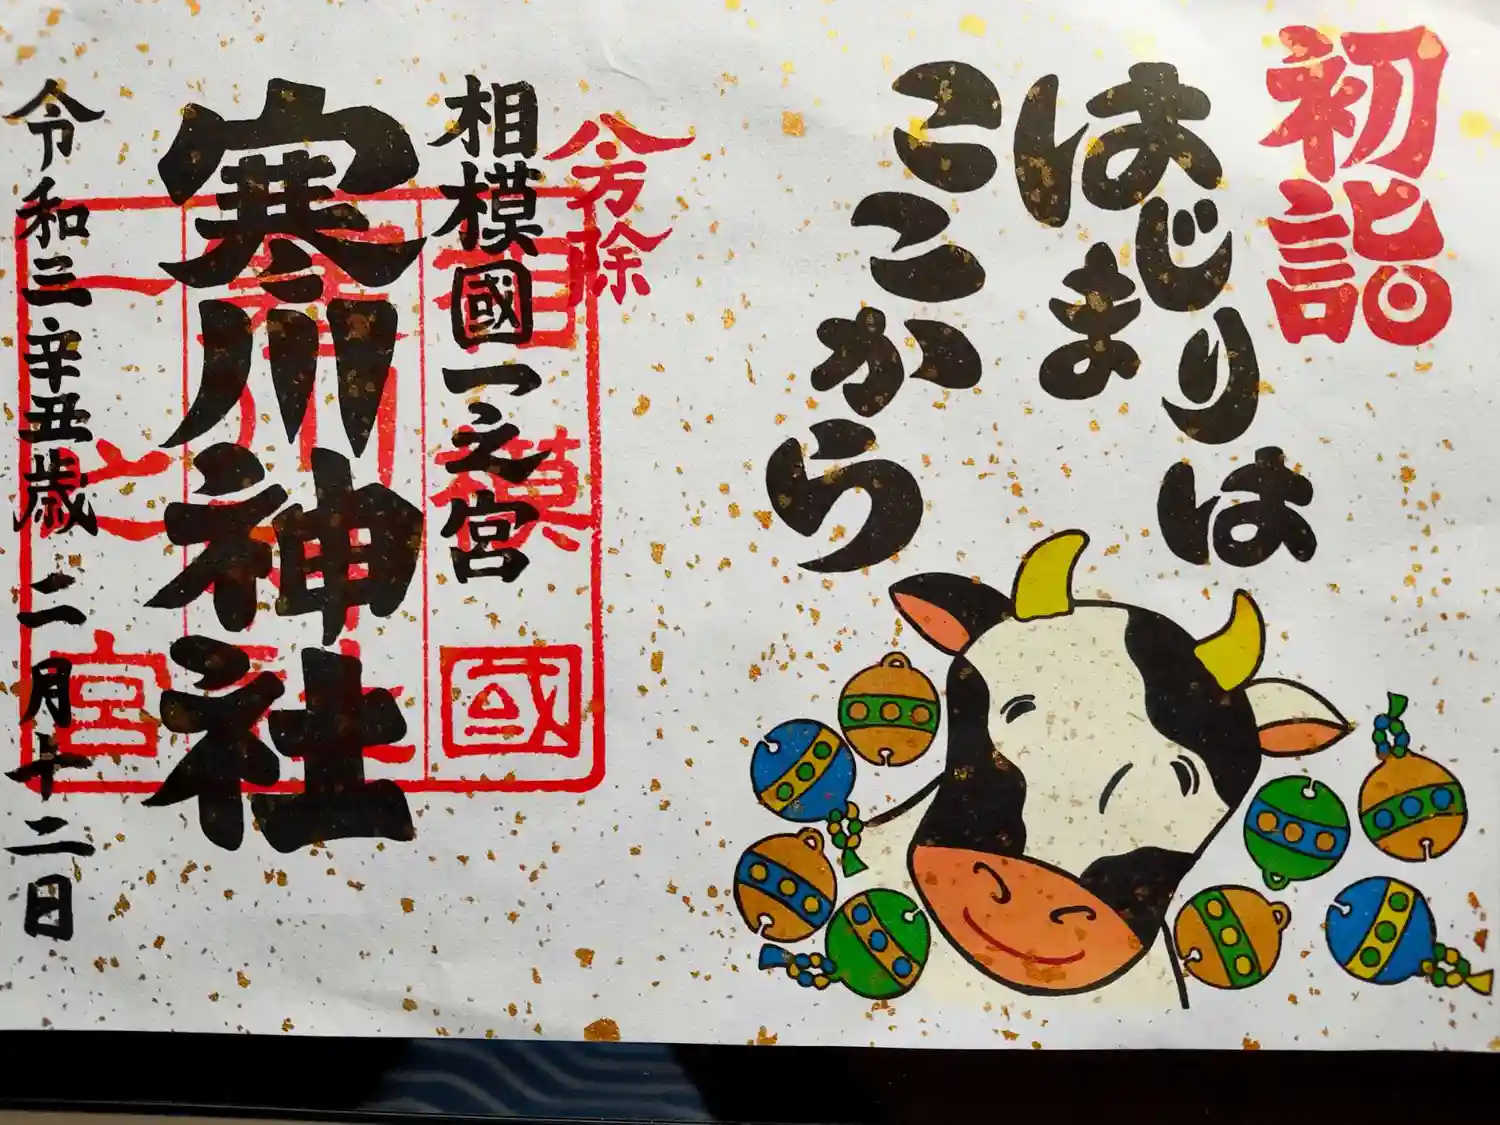 初詣
はじまりは
いま
ここから
八方除
相模國一之宮
寒川神社
令和三辛丑歳二月十二日
相模國
寒川神社
一之宮